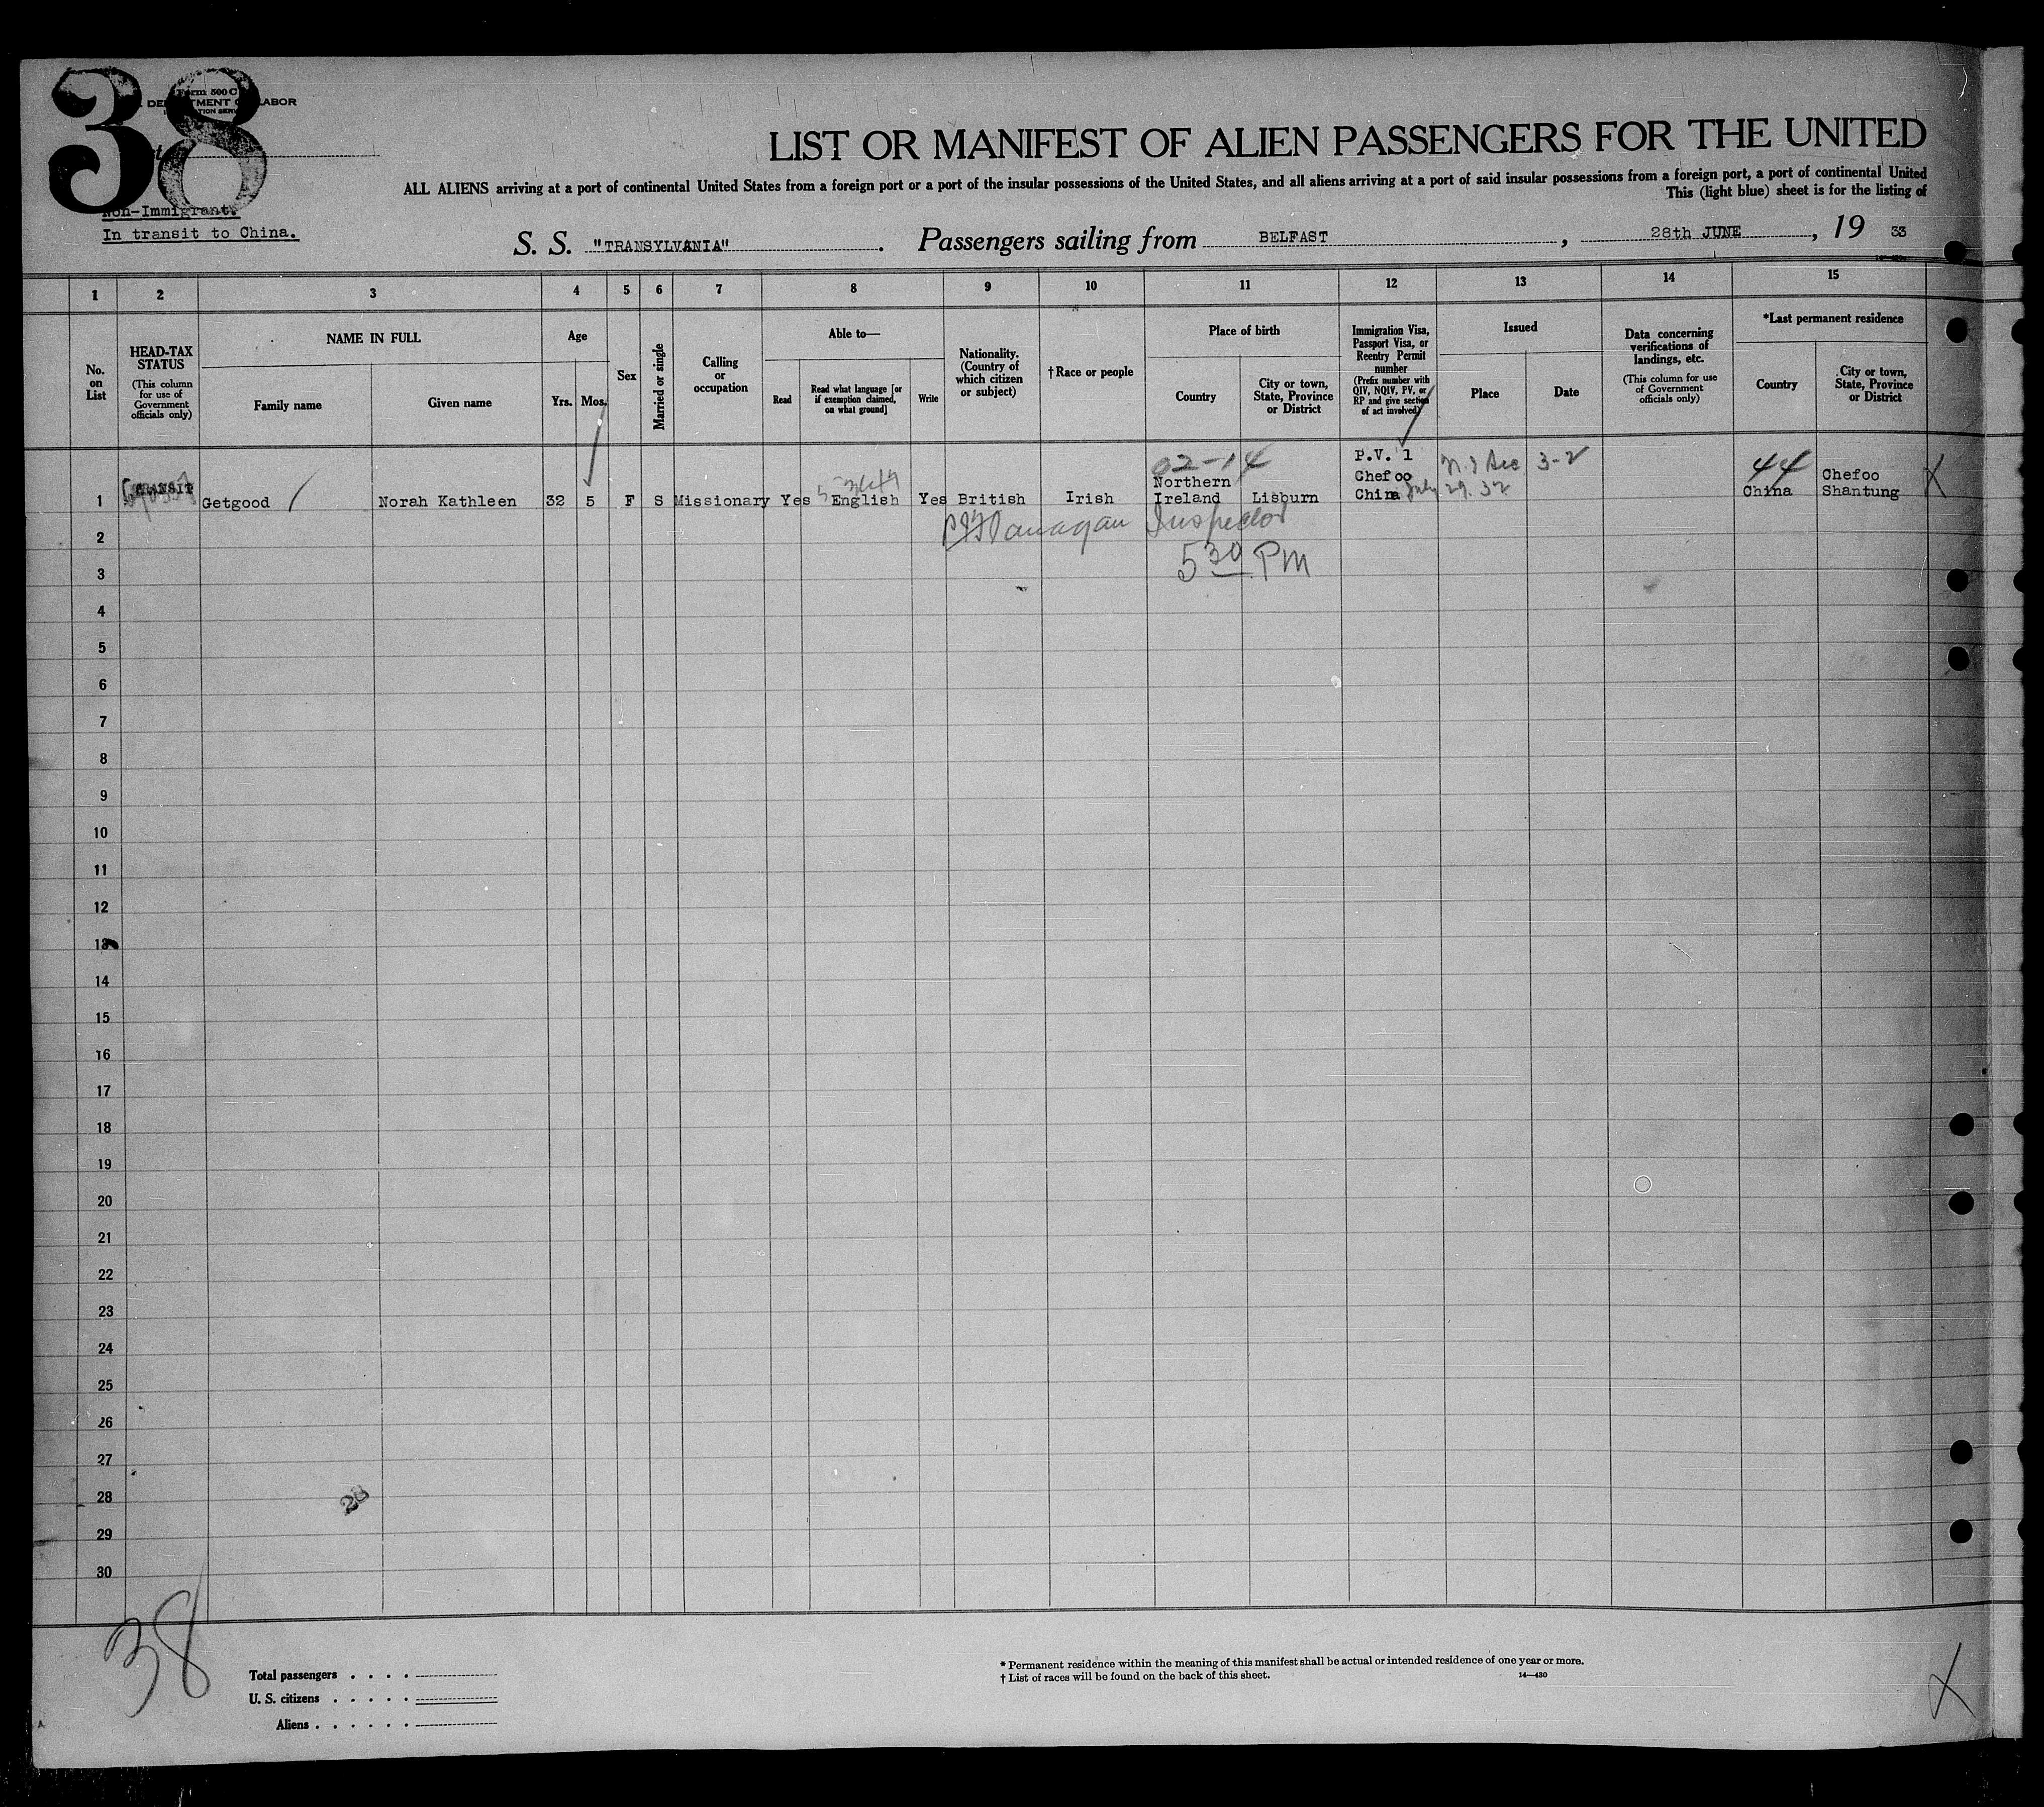 38
Form 500 C
DEPARTMENT OF LABOR
LIST OR MANIFEST OF ALIEN PASSENGERS FOR THE UNITED
ALL ALIENS arriving at a port of continental United States from a foreign port or a port of the insular possessions of the United States, and all aliens arriving at a port of said insular possessions from a foreign port, a port of continental United
This (light blue) sheet is for the listing of
Non-Immigrant.
In transit to China.
S. S. "TRANSYLVANIA". Passengers sailing from BELFAST, 28th JUNE, 19 33
1 2 3 4 5 6 7 8 9 10 11 12 13 14 15
No. on List
HEAD-TAX STATUS
(This column for use of Government officials only)
NAME IN FULL
Family name
Given name
Age
Yrs. Mos.
Sex
Married or single
Calling or occupation
Able to—
Read
Read what language [or if exemption claimed, on what ground]
Write
Nationality. (Country of which citizen or subject)
†Race or people
Place of birth
Country
City or town, State, Province or District
Immigration Visa, Passport Visa, or Reentry Permit number
(Prefix number with QIV, NQIV, PV, or RP and give section of act involved)
Issued
Place
Date
Data concerning verifications of landings, etc.
(This column for use of Government officials only)
*Last permanent residence
Country
City or town, State, Province or District
02-14
P.V. 1
3-2
44
TRANSIT
Northern
Chefoo
Chefoo
1 Getgood Norah Kathleen 32 5 F S Missionary Yes English Yes British Irish Ireland Lisburn China July 29. 32 China Shantung X
2 Flanagan Inspector
3 5 30 PM
4
5
6
7
8
9
10
11
12
13
14
15
16
17
18
19
20
21
22
23
24
25
26
27
28 28
29
30
38
Total passengers . . . .
U. S. citizens . . . . .
Aliens . . . . . .
* Permanent residence within the meaning of this manifest shall be actual or intended residence of one year or more.
† List of races will be found on the back of this sheet.
14—430
X